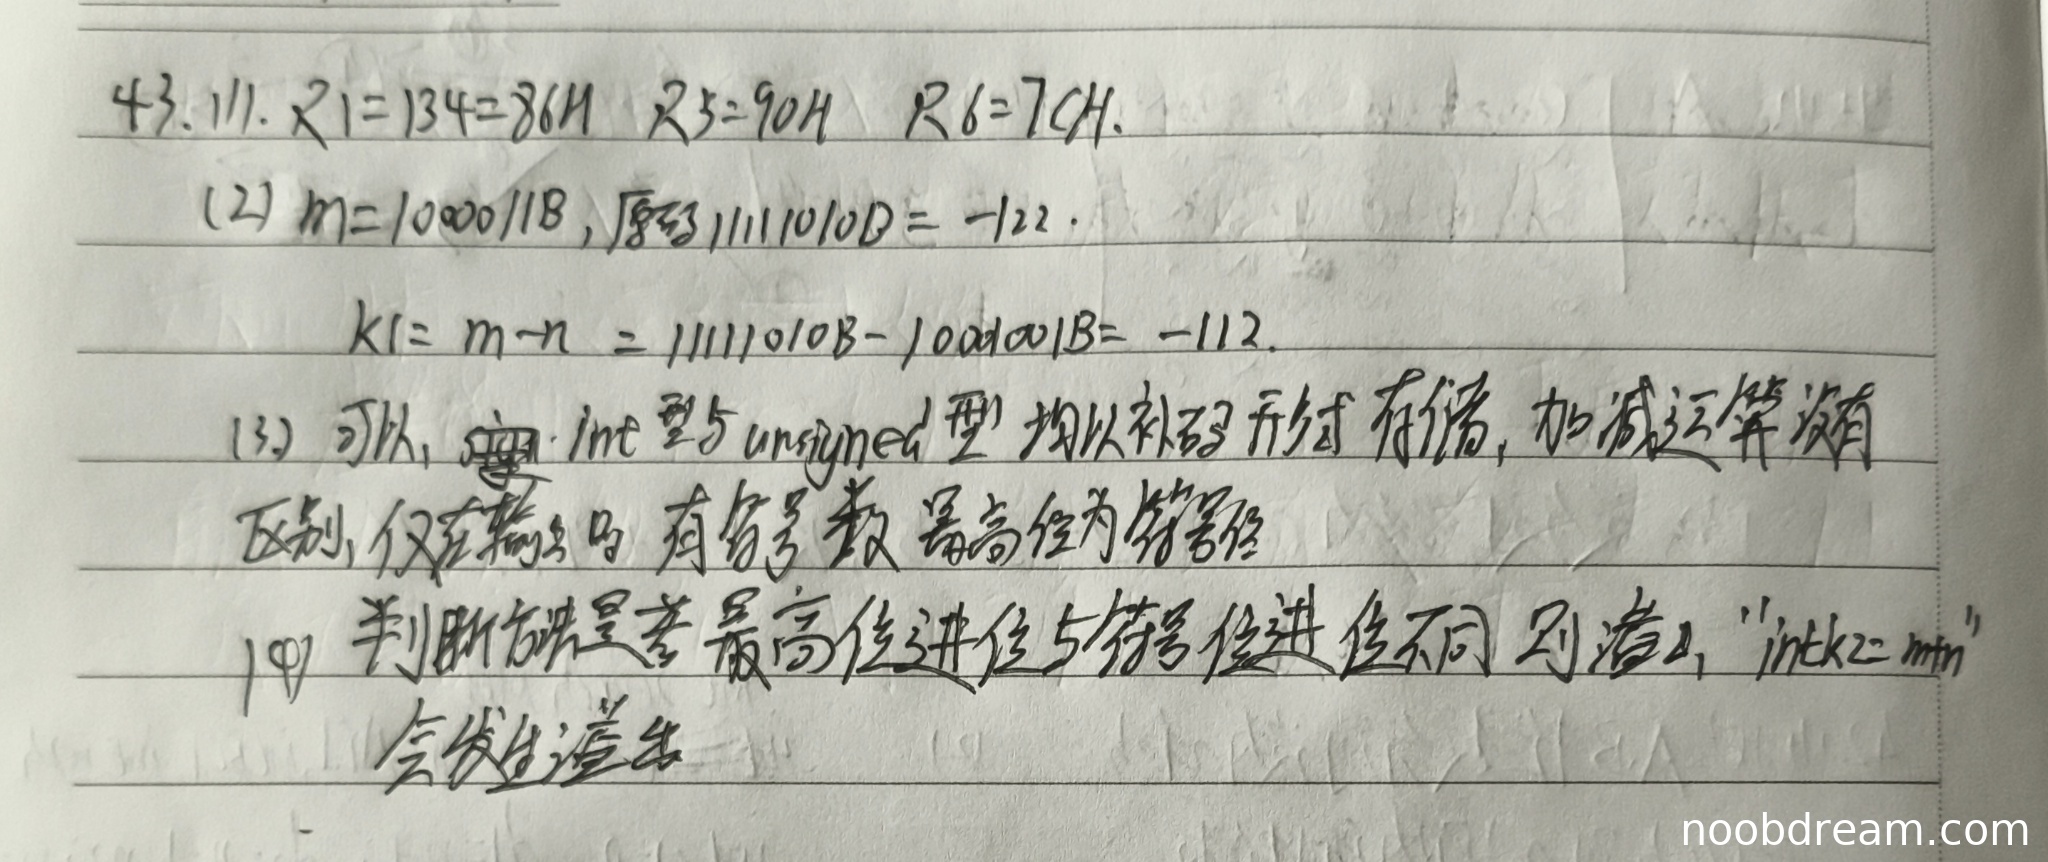 43. (1). R1=134=86H R5=90H R6=7CH.
(2) m=1000011B, 原码11111010B= -122.
k1= m-n = 11111010B-1001001B= -112.
(3) 可以, int型与unsigned型 均以补码形式存储, 加减运算没有
区别, 仅在输出时 有符号数 最高位为符号位
(4) 判断方法是若最高位进位与符号位进位不同 则溢出, "int k2= m+n"
会发生溢出
noobdream.com